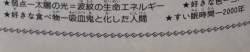 ★弱点―太陽の光＝波紋の生命エネルギー
★好きな食べ物―吸血鬼と化した人間
★好きな色―
★すい眠時間―2000年